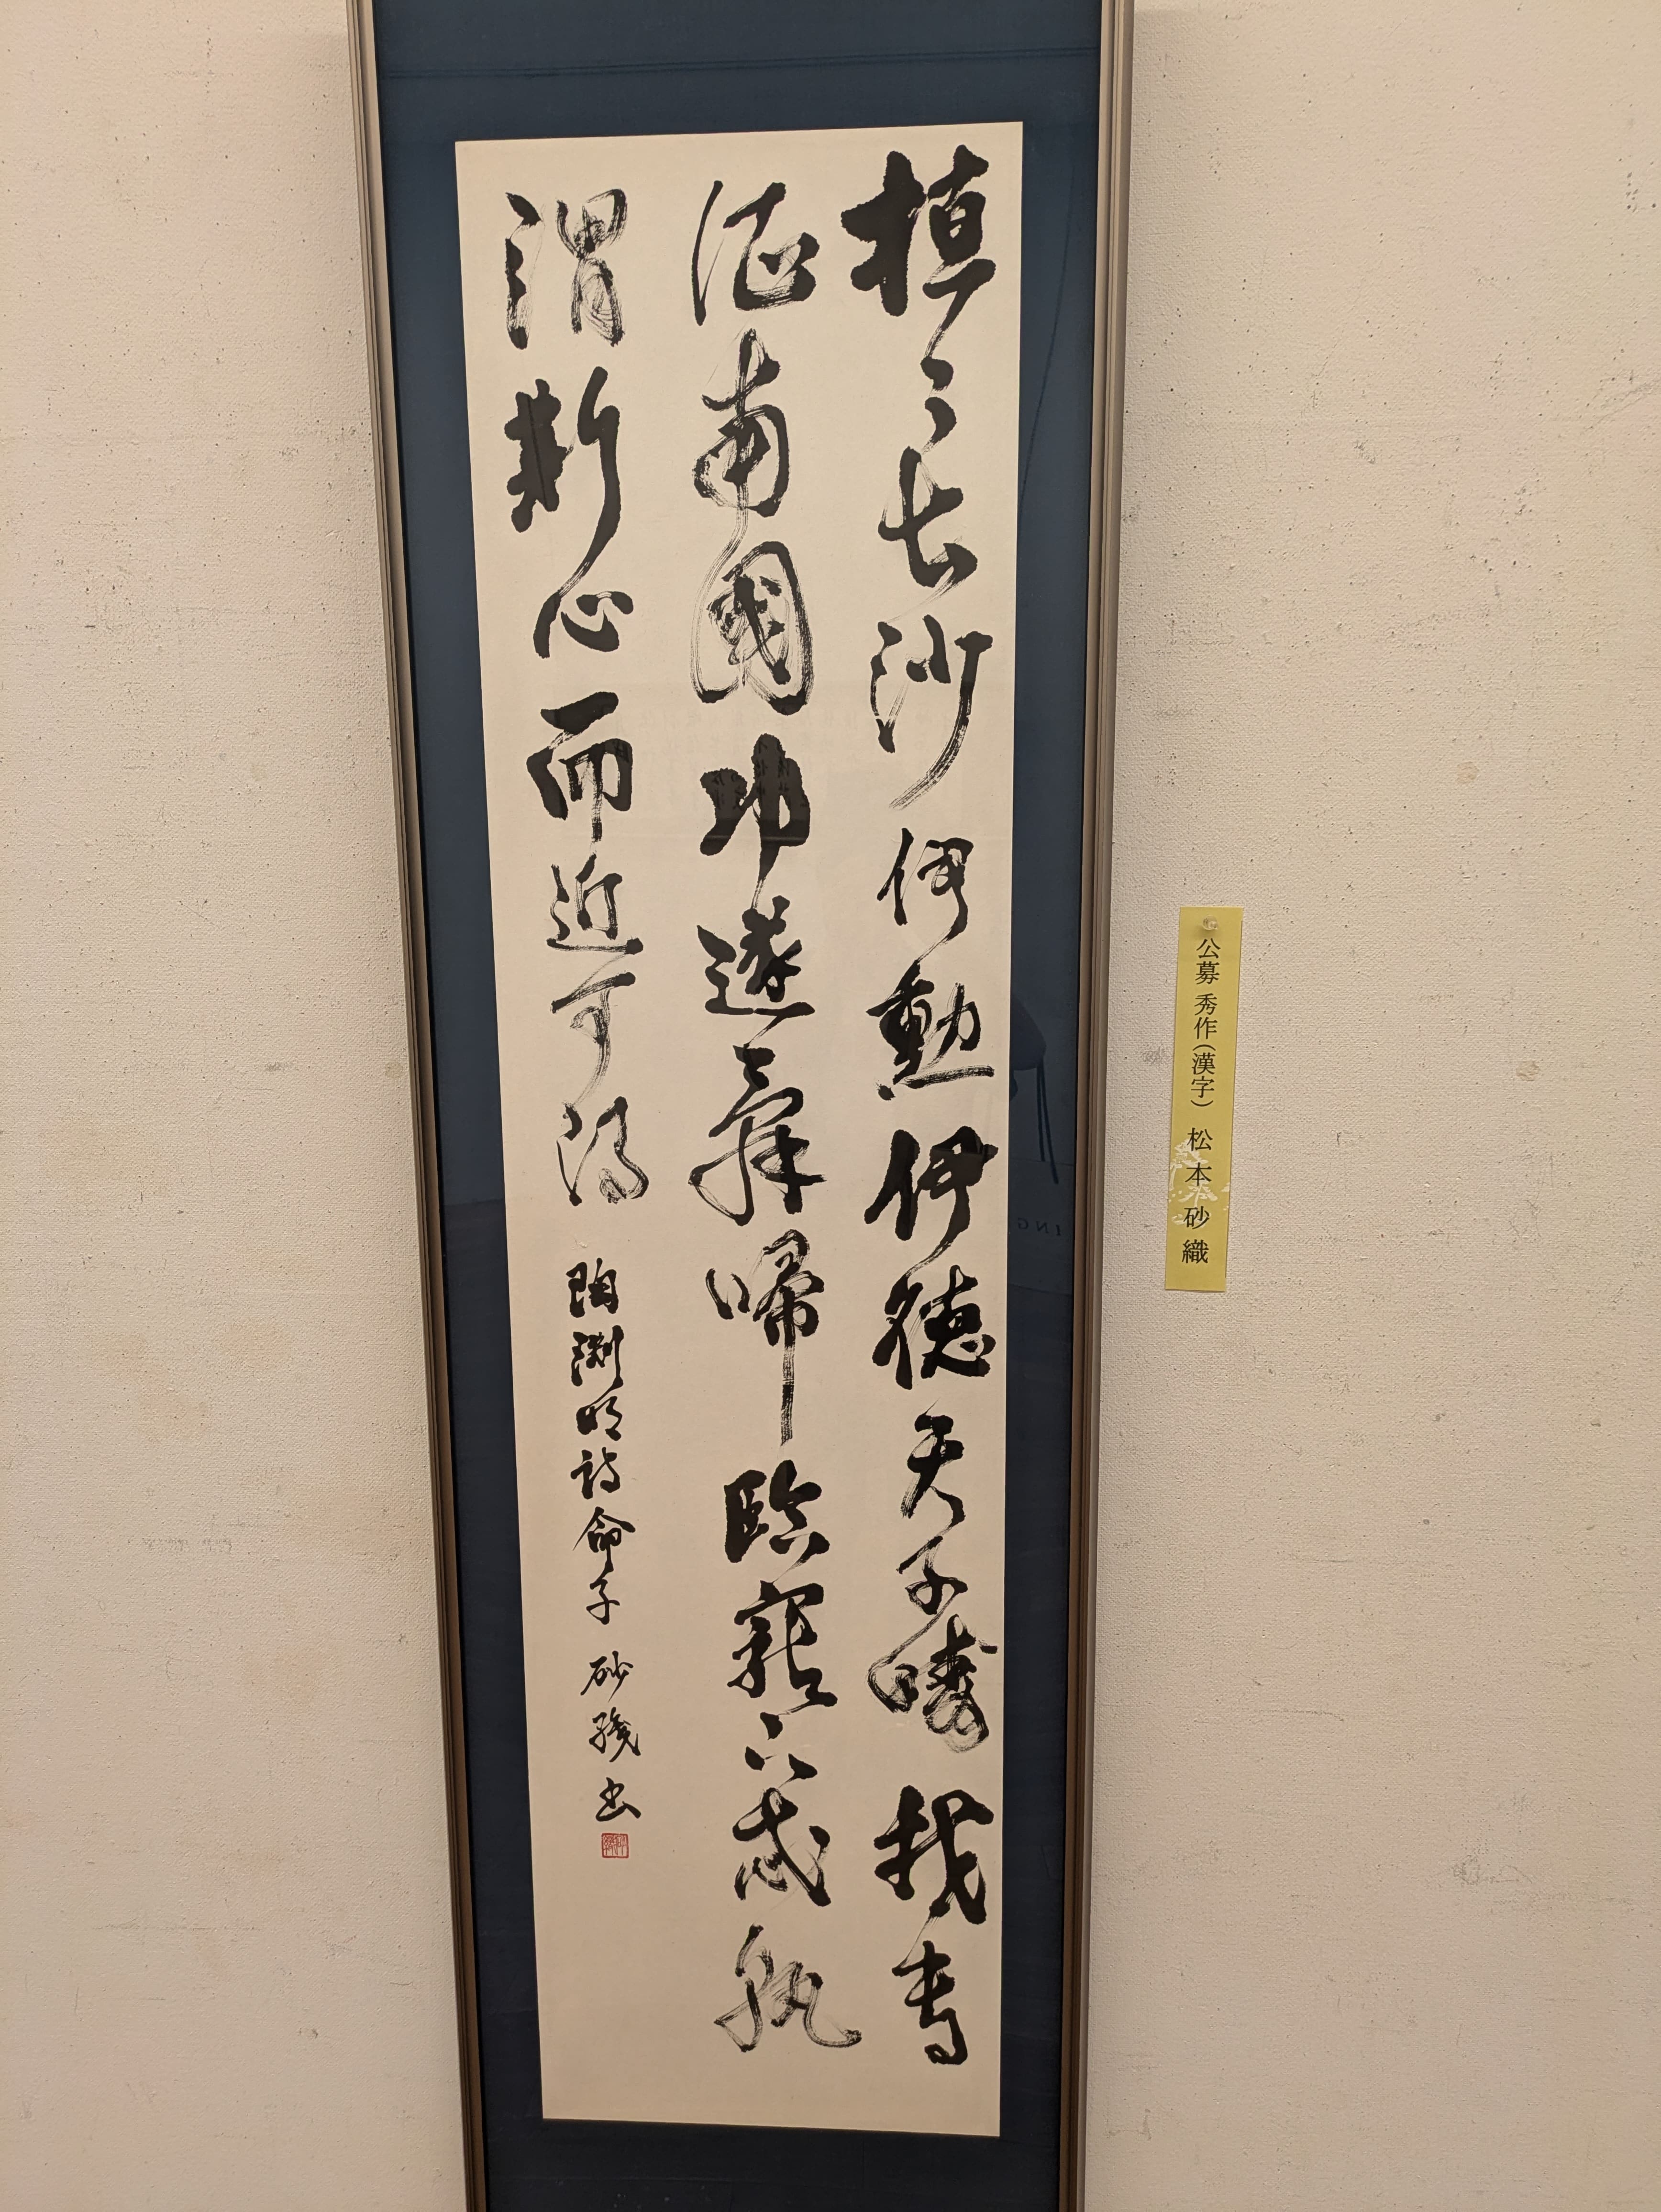 桓々長沙伊勲伊徳天子疇我専
征南國功遂辞帰臨寵不忒孰
謂斯心而近可得 陶淵明詩命子 砂織書
公募 秀作(漢字) 松本砂織